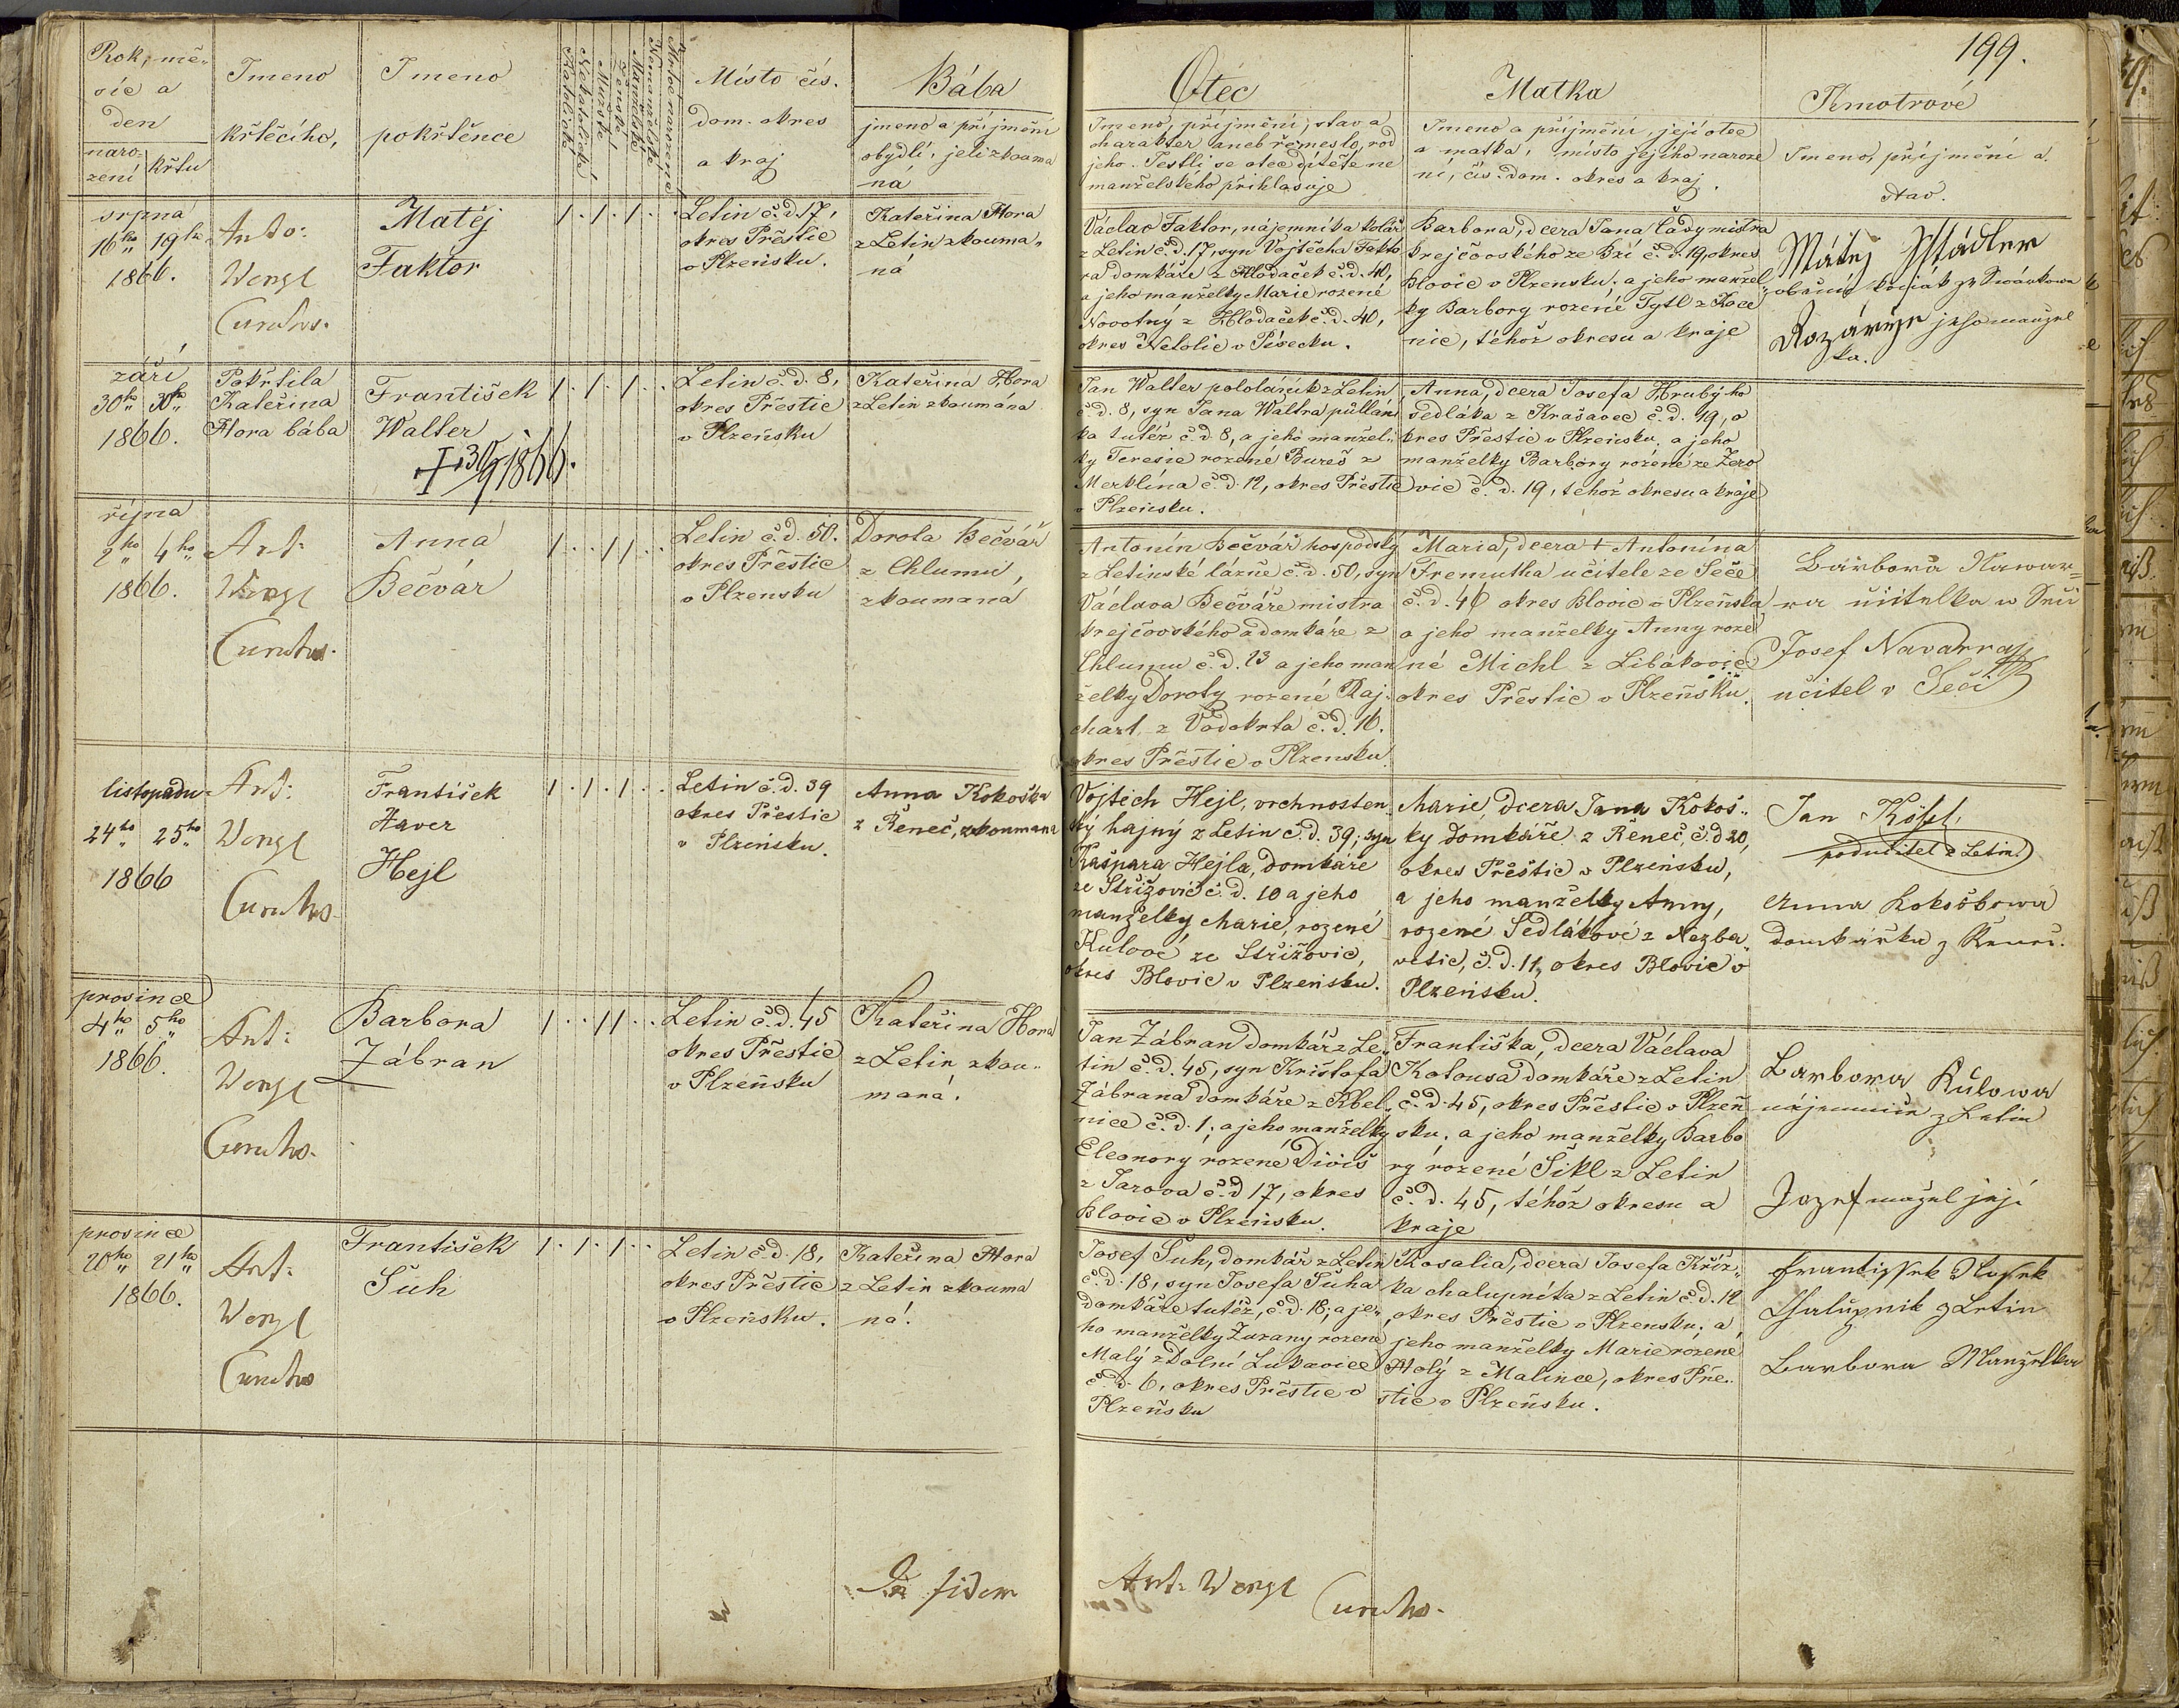 199.
Rok, mě-
síc a
den
naro-
zení
křtu
Jmeno
křtěcího,
Jmeno
pokřtěnce
Katolické
Nekatolické
Mužské
Ženské
Manželské
Nemanželské
Mrtvě rozené
Místo čís.
dom. okres
a kraj
Bába
jmeno a příjmění
obydlí, jeli zkouma
ná
Otec
Jmeno, příjmění, stav a
charakter aneb řemeslo, rod
jeho. Jestli se otec dítěte ne
manželského přihlašuje
Matka
Jmeno a příjmění, její otec
a matka, místo jejího naroze
ní, čís. dom. okres a kraj.
Kmotrové
Jmeno, příjmění a
stav.
srpna
16ho 19ho
1866.
Anto:
Wengl
Curatus.
Matěj
Faktor
1 . 1 . 1 . .
Letin č.d. 17,
okres Přestic
v Plzeńsku.
Kateřina Hora
z Letin zkouma-
ná
Václav Faktor, nájemníka kolář
z Letin č.d. 17, syn Vojtěcha Fakto
ra domkáře z Hlodaček č.d. 40,
a jeho manželky Marie rozené
Novotný z Hlodaček č.d. 40,
okres Netolic v Písecku.
Barbora, dcera Jana Čady mistra
krejčovského ze Bzí č.d. 19, okres
Blovic v Plzensku, a jeho manžel
ky Barbory rozené Tytl z Koce
nic, téhož okresu a kraje
Matěj Stádler
Rozárije jeho manżel
ka.
září
30ho 30ho
1866.
Pokřtila
Kateřina
Hora bába
František
Walter
+ 30/9 1866.
1 . 1 . 1 . .
Letin č.d. 8,
okres Přestic
v Plzeńsku
Kateřina Hora
z Letin zkoumána
Jan Walter pololáník z Letin
č.d. 8, syn Jana Waltra půllání
ka tutéž č.d. 8, a jeho manžel-
ky Teresie rozené Bureš z
Merklína č.d. 12, okres Přestic
v Plzeńsku.
Anna, dcera Josefa Hrubýho
sedláka z Krašovec č.d. 19, o
kres Přestic v Plzeńsku, a jeho
manželky Barbory rozené ze Žero
vic č.d. 19, téhož okresu a kraje
října
2ho 4ho
1866.
Ant:
Wengl
Curatus.
Anna
Bečvár
1 . . 1 1 . .
Letin č.d. 50.
okres Přestic
v Plzensku
Dorota Bečvář
z Chlumu,
zkoumaná
Antonín Bečvář hospodský
z Letinské lázně č.d. 50, syn
Václava Bečváře mistra
krejčovského a domkáře z
Chlumu č.d. 23 a jeho man
želky Doroty rozené Raj-
chart z Vodokrta č.d. 16.
okres Přestic v Plzensku.
Maria, dcera + Antonína
Fremutha učitele ze Seče
č.d. 46 okres Blovic v Plzeńsku
a jeho manželky Anny roze
né Michl z Libákovic
okres Přestic v Plzeńsku.
Barbora Nawar-
ra učitelka w Seči
Josef Navarra
učitel v Seči
listopadu
24ho 25ho
1866
Ant:
Wengl
Curatus.
František
Xaver
Hejl
1 . 1 . 1 . .
Letin č.d. 39
okres Přestic
v Plzeńsku.
Anna Kokoška
z Řeneč, zkoumana
Vojtěch Hejl, vrchnosten-
ský hajný z Letin č.d. 39; syn
Kašpara Hejla, domkáře
ze Střížovic č.d. 10 a jeho
manželky Marie, rozené
Kulové ze Střížovic,
okres Blovic v Plzeńsku.
Marie, dcera Jana Kokoš-
ky domkáře z Řeneč, č.d. 20,
okres Přeštic v Plzeńsku,
a jeho manželky Anny,
rozené Sedlákové z Nezba-
vetic, č.d. 11, okres Blovic v
Plzeńsku.
Jan Kössl,
podučitel z Letin.
Anna Kokoškowa
domkářka z Řeneč.
prosince
4ho 5ho
1866.
Ant:
Wengl
Curatus.
Barbora
Zábran
1 . . 1 1 . .
Letin č.d. 45
okres Přestic
v Plzeńsku
Kateřina Hora
z Letin zkou-
maná.
Jan Zábran domkář z Le-
tin č.d. 45, syn Krištofa
Zábrana domkáře z Kbel-
nice č.d. 1, a jeho manželky
Eleonory rozené Diviš
z Jarova č.d. 17, okres
Blovic v Plzeńsku.
Františka, dcera Václava
Kotousa domkáře z Letin
č.d. 45, okres Přestic v Plzeń
sku, a jeho manželky Barbo
ry rozené Šikl z Letin
č.d. 45, téhož okresu a
kraje
Barbora Kulowa
nájemnice z Letin
Jozef mažel její
prosince
20ho 21ho
1866.
Ant:
Wengl
Curatus
František
Šuh
1 . 1 . 1 . .
Letin č.d. 18,
okres Přestic
v Plzeńsku.
Kateřina Hora
z Letin zkouma
ná.
Josef Šuh, domkář z Letin
č.d. 18, syn Josefa Šuha
domkáře tutéž, č.d. 18, a je-
ho manželky Zuzany rozené
Malý z Dolní Lukavice
č.d. 6, okres Přestic v
Plzeńsku
Rosalia, dcera Josefa Kříž-
ka chalupníka z Letin č.d. 12
okres Přestic v Plzensku, a
jeho manželky Marie rozené
Holý z Malince, okres Pře-
stic v Plzeńsku.
Frantissek Hossek
Chalupnik z Letin
Barbora Manželka
Ant: Wengl
Curatus.